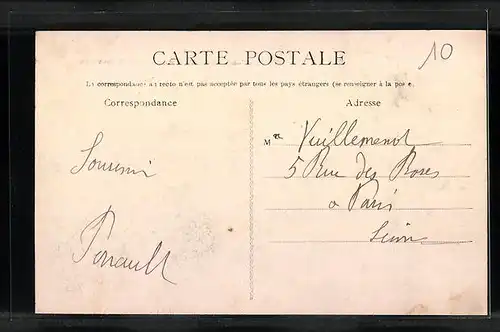 CARTE POSTALE
10
La correspondance au recto n'est pas acceptée par tous les pays étrangers (se renseigner à la poste
Correspondance
Adresse
Souvenir
Mlle Vuillemenot
5 Rue des Roses
à Paris
Seine